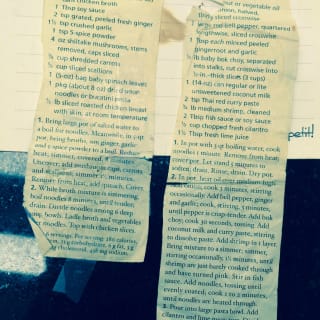 chicken broth
1 Tbsp soy sauce
2 tsp grated, peeled fresh ginger
1½ tsp crushed garlic
1 tsp 5 spice powder
4 oz shiitake mushrooms, stems
removed, caps sliced
½ cup shredded carrots
½ cup sliced scallions
1 (5-oz) bag baby spinach leaves
1 pkg (about 8 oz) dried udon
noodles or bucatini pasta
½ lb sliced roasted chicken breast
with skin, at room temperature
1. Bring large pot of salted water to
a boil for noodles. Meanwhile, in
pot, bring broths, soy, ginger, garlic
and 5 spice powder to a boil. Reduce
heat; simmer, covered, 8 minutes.
Uncover; add mushrooms, carrots,
and scallions; simmer
Remove from heat; add spinach. Cover.
2. While broth mixture is simmering,
boil noodles 8 minutes, until tender;
drain. Divide noodles among 4 deep
bowls. Ladle broth and vegetables
over noodles. Top with chicken slices.
4 servings. Per serving: 280 calories,
carbohydrate, 6 g fat,
cholesterol, 438 mg sodium,
nut or vegetable oil
onion, halved,
sliced crosswise
red bell pepper, quartered
lengthwise, sliced crosswise
1 Tbsp each minced peeled
gingerroot and garlic
¾ lb baby bok choy, separated
into stalks, cut crosswise into
½-in.-thick slices (3 cups)
1 (14-oz) can regular or lite
unsweetened coconut milk
2 tsp Thai red curry paste
¾ lb medium shrimp, cleaned
2 Tbsp fish sauce or soy sauce
¼ cup chopped fresh cilantro
1 Tbsp fresh lime juice
petit!
1. In pot with 3-qt boiling water, cook
noodles 1 minute. Remove from heat.
Cover pot. Let stand 5 minutes to
soften, drain. Rinse, drain. Dry pot.
2. In pot, heat oil over medium-high
cook 3 minutes, stirring
occasionally. Add bell pepper, ginger
and garlic; cook, stirring, 3 minutes,
until pepper is crisp-tender. Add bok
choy; cook 30 seconds, tossing. Add
coconut milk and curry paste, stirring
to dissolve paste. Add shrimp in 1 layer.
Bring mixture to a simmer; simmer,
stirring occasionally, 1½ minutes, until
shrimp are just barely cooked through
and have turned pink. Stir in fish
sauce. Add noodles, tossing until
evenly coated; cook 1 to 2 minutes,
until noodles are heated through.
3. Pour into large pasta bowl. Add
cilantro and lime